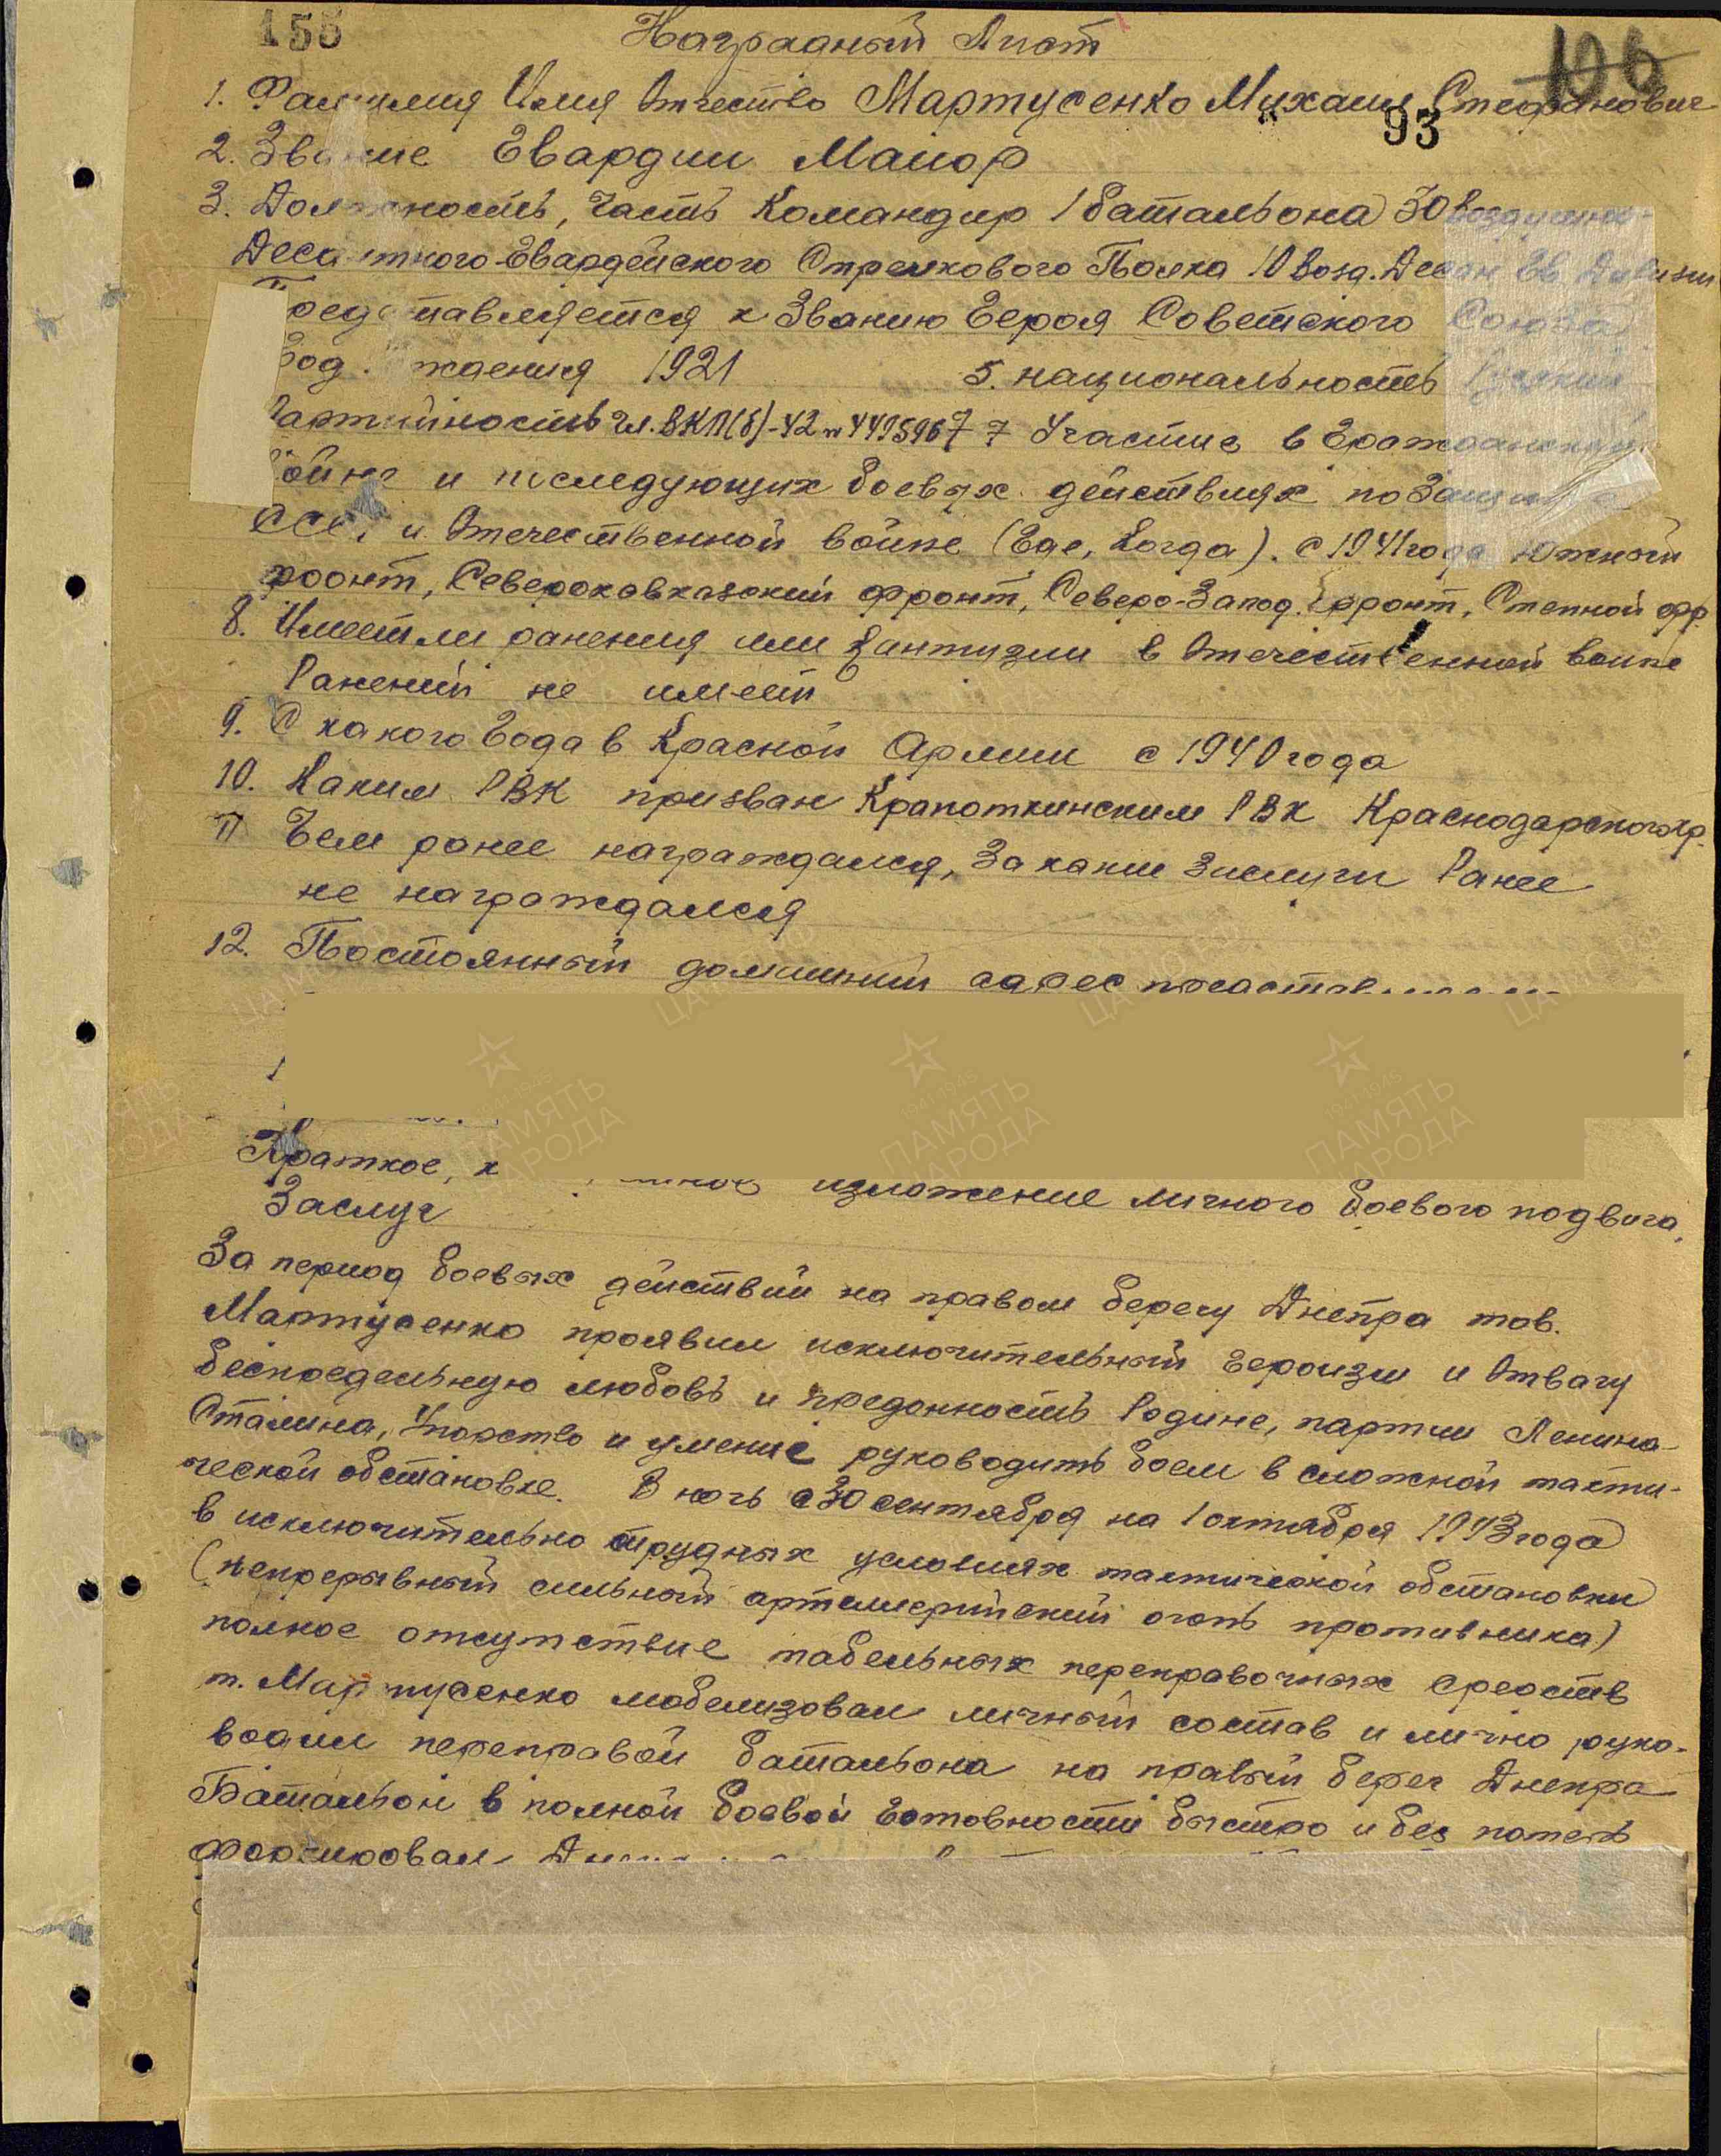 155
Наградный Лист
106
1. Фамилия Имя Отчество Мартусенко Михаил Стефанович
93
2. Звание Гвардии Маиор
3. Должность, часть Командир 1 батальона 30 воздушно-
Десантного Гвардейского Стрелкового Полка 10 Возд. Десан Гв Дивизии
Представляется к Званию Героя Советского Союза
Год рождения 1921 5. национальность Русский
Партийность чл. ВКП(б)-42 № 4495967 7 Участие в Гражданской
войне и последующих боевых действиях по Защите
СССР и Отечественной войне (Где, Когда). с 1941 года Южный
фронт, Северокавказский фронт, Северо-Запад. фронт, Степной фр.
8. Имеет ли ранения или Контузии в Отечественной войне
Ранений не имеет
9. С какого Года в Красной Армии с 1940 года
10. Каким РВК призван Крапоткинским РВК Краснодарского кр.
11 Чем ранее награждался, За какие Заслуги Ранее
не награждался
12. Постоянный домашний адрес
Краткое, к изложение личного боевого подвига,
Заслуг
За период боевых действий на правом берегу Днепра тов.
Мартусенко проявил исключительный Героизм и Отвагу
беспредельную любовь и преданность Родине, партии Ленина-
Сталина, Упорство и умение руководить боем в сложной такти-
ческой обстановке. В ночь с 30 сентября на 1 октября 1943 года
в исключительно трудных условиях тактической обстановки
(непрерывный сильный артиллерийский огонь противника)
полное отсутствие табельных переправочных средств
т. Мартусенко мобелизовал личный состав и лично руко-
водил переправой батальона на правый берег Днепра
Батальон в полной боевой Готовности быстро и без потерь
форсировал